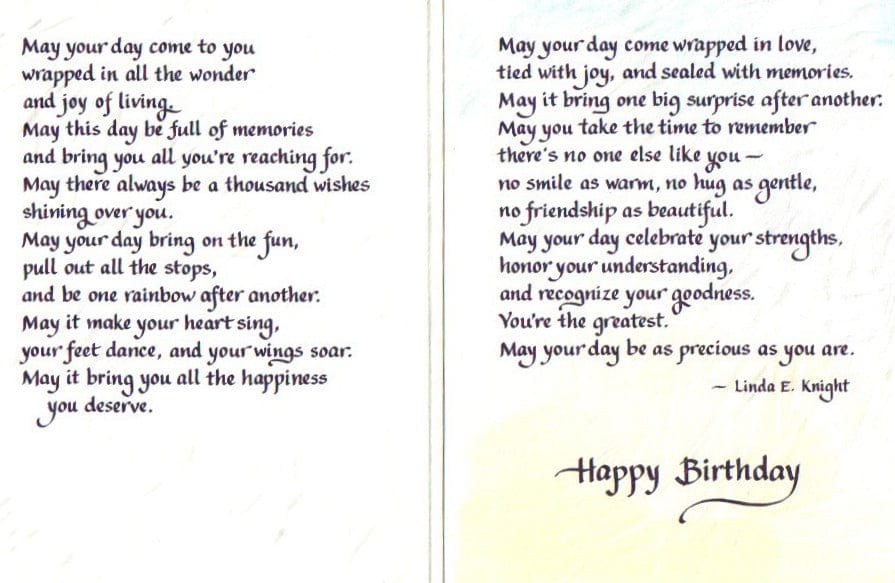 May your day come to you
wrapped in all the wonder
and joy of living.
May this day be full of memories
and bring you all you're reaching for.
May there always be a thousand wishes
shining over you.
May your day bring on the fun,
pull out all the stops,
and be one rainbow after another.
May it make your heart sing,
your feet dance, and your wings soar.
May it bring you all the happiness
you deserve.
May your day come wrapped in love,
tied with joy, and sealed with memories.
May it bring one big surprise after another.
May you take the time to remember
there's no one else like you —
no smile as warm, no hug as gentle,
no friendship as beautiful.
May your day celebrate your strengths,
honor your understanding,
and recognize your goodness.
You're the greatest.
May your day be as precious as you are.
~ Linda E. Knight
Happy Birthday